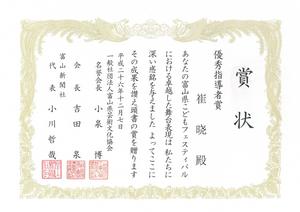 賞状
優秀指導者賞
崔曉殿
あなたの富山県こどもフェスティバル
における卓越した舞台表現は私たちに
深い感銘を与えました よってここに
その成果を讃え頭書の賞を贈ります
平成二十六年十二月七日
一般社団法人富山県芸術文化協会
名誉会長 小泉博
会長 吉田泉
富山新聞社
代表 小川哲哉